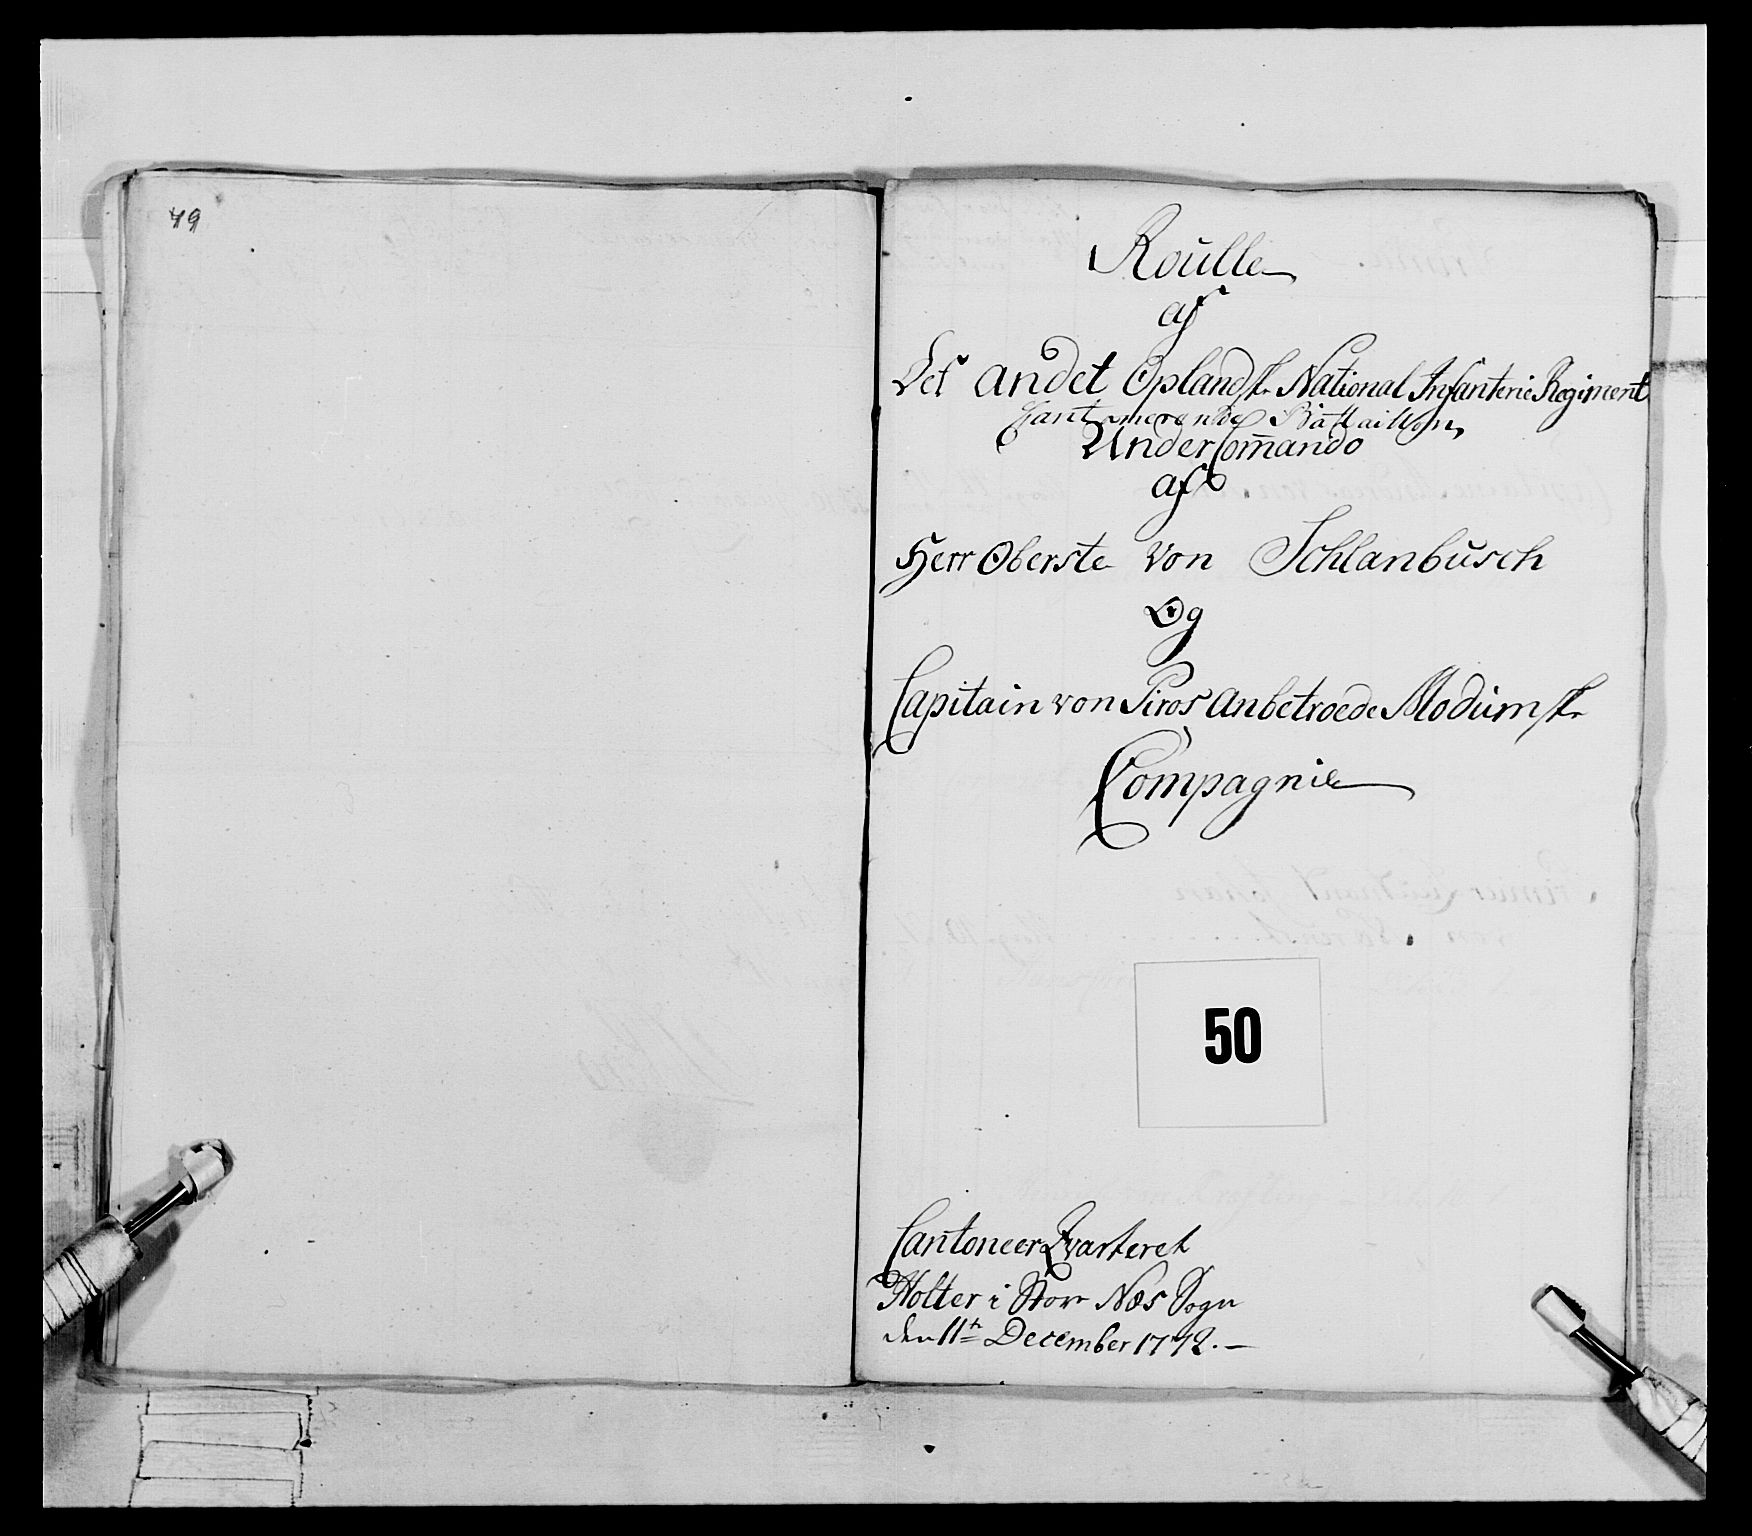 49
Roülle
af
Det andet Oplandske National Infanterie Regiment
Cantonnerende Battaillon
Under Com̄ando
af
Herr Oberste von Schlanbüsch
Og
Capitain von Piros anbetroede Modumske
Compagnie
50
Cantoneer Qvarteret
Holter i Stor Næs Sogn
den 11te December 1742.